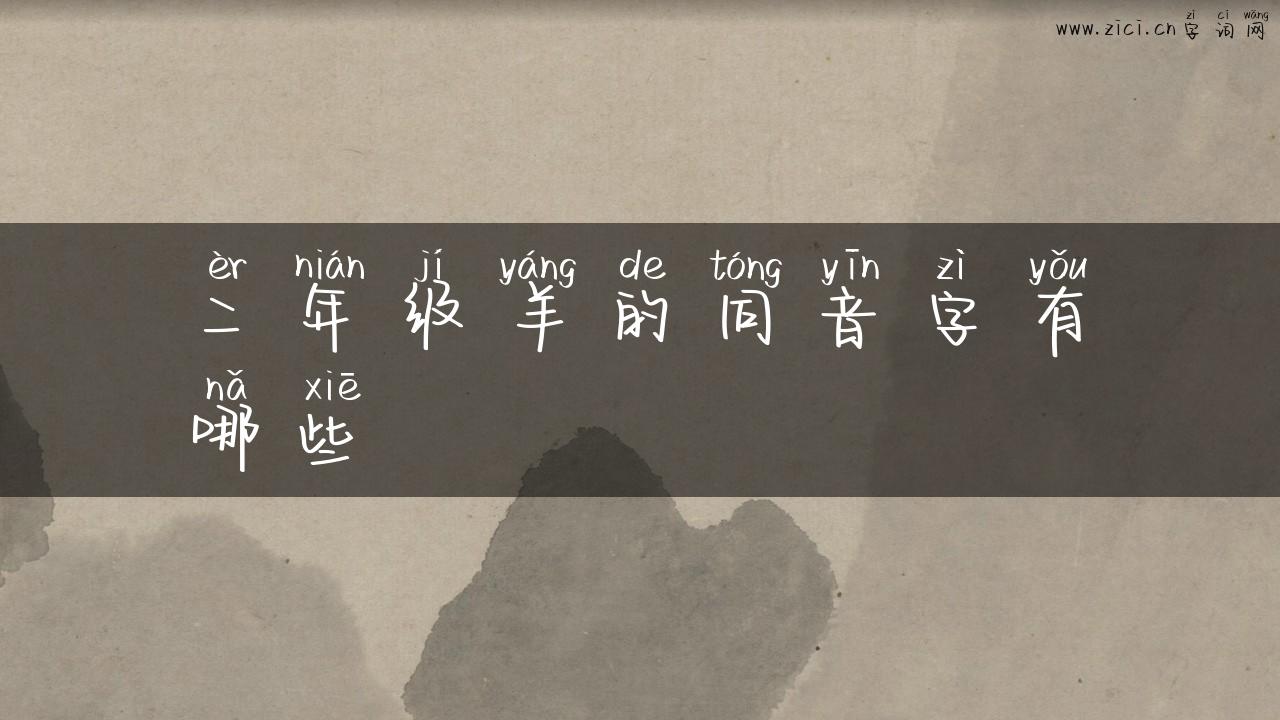 zì cí wǎng
www.zici.cn 字 词 网
èr nián jí yáng de tóng yīn zì yǒu
二 年 级 羊 的 同 音 字 有
nǎ xiē
哪 些